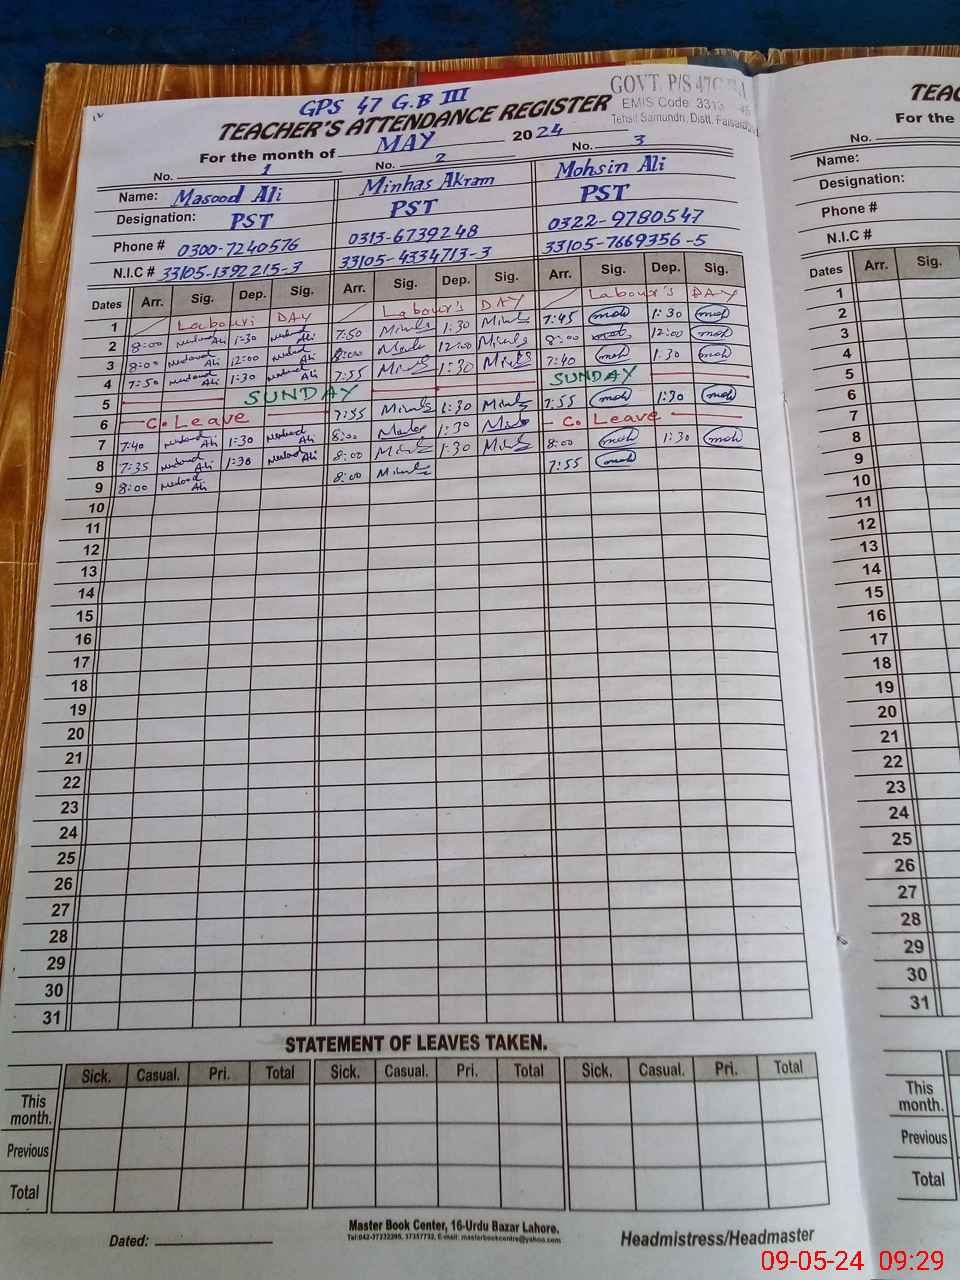 GPS 47 G.B III
GOVT. P/S 47
EMIS Code 3313
Tehsil Samundri, Distt. Faisalabad
TEACHER'S ATTENDANCE REGISTER
For the month of MAY 2024
No. 1 No. 2 No. 3
Name: Masood Ali Minhas Akram Mohsin Ali
Designation: PST PST PST
Phone # 0300-7240576 0313-6739248 0322-9780547
N.I.C # 33105-1392215-3 33105-4334713-3 33105-7669356-5
Dates Arr. Sig. Dep. Sig. Arr. Sig. Dep. Sig. Arr. Sig. Dep. Sig.
1 Labour's DAY Labour's DAY Labour's DAY
2 8:00 Masood Ali 1:30 Masood Ali 7:50 Minhas 1:30 Minhas 7:45 moh 1:30 moh
3 8:00 Masood Ali 12:00 Masood Ali 8:00 Minhas 12:00 Minhas 8:00 moh 12:00 moh
4 7:50 Masood Ali 1:30 Masood Ali 7:55 Minhas 1:30 Minhas 7:40 moh 1:30 moh
5 SUNDAY SUNDAY
6 C. Leave 7:55 Minhas 1:30 Minhas 7:55 moh 1:30 moh
7 7:40 Masood Ali 1:30 Masood Ali 8:00 Minhas 1:30 Minhas C. Leave
8 7:35 Masood Ali 1:30 Masood Ali 8:00 Minhas 1:30 Minhas 8:00 moh 1:30 moh
9 8:00 Masood Ali 8:00 Minhas 7:55 moh
10
11
12
13
14
15
16
17
18
19
20
21
22
23
24
25
26
27
28
29
30
31
STATEMENT OF LEAVES TAKEN.
Sick. Casual. Pri. Total Sick. Casual. Pri. Total Sick. Casual. Pri. Total
This month.
Previous
Total
Master Book Center, 16-Urdu Bazar Lahore.
Tel:042-37232395, 37357732, E-mail: masterbookcentre@yahoo.com
Dated: Headmistress/Headmaster
TEAC
For the
No.
Name:
Designation:
Phone #
N.I.C #
Dates Arr. Sig.
1
2
3
4
5
6
7
8
9
10
11
12
13
14
15
16
17
18
19
20
21
22
23
24
25
26
27
28
29
30
31
Sick.
This month.
Previous
Total
09-05-24 09:29